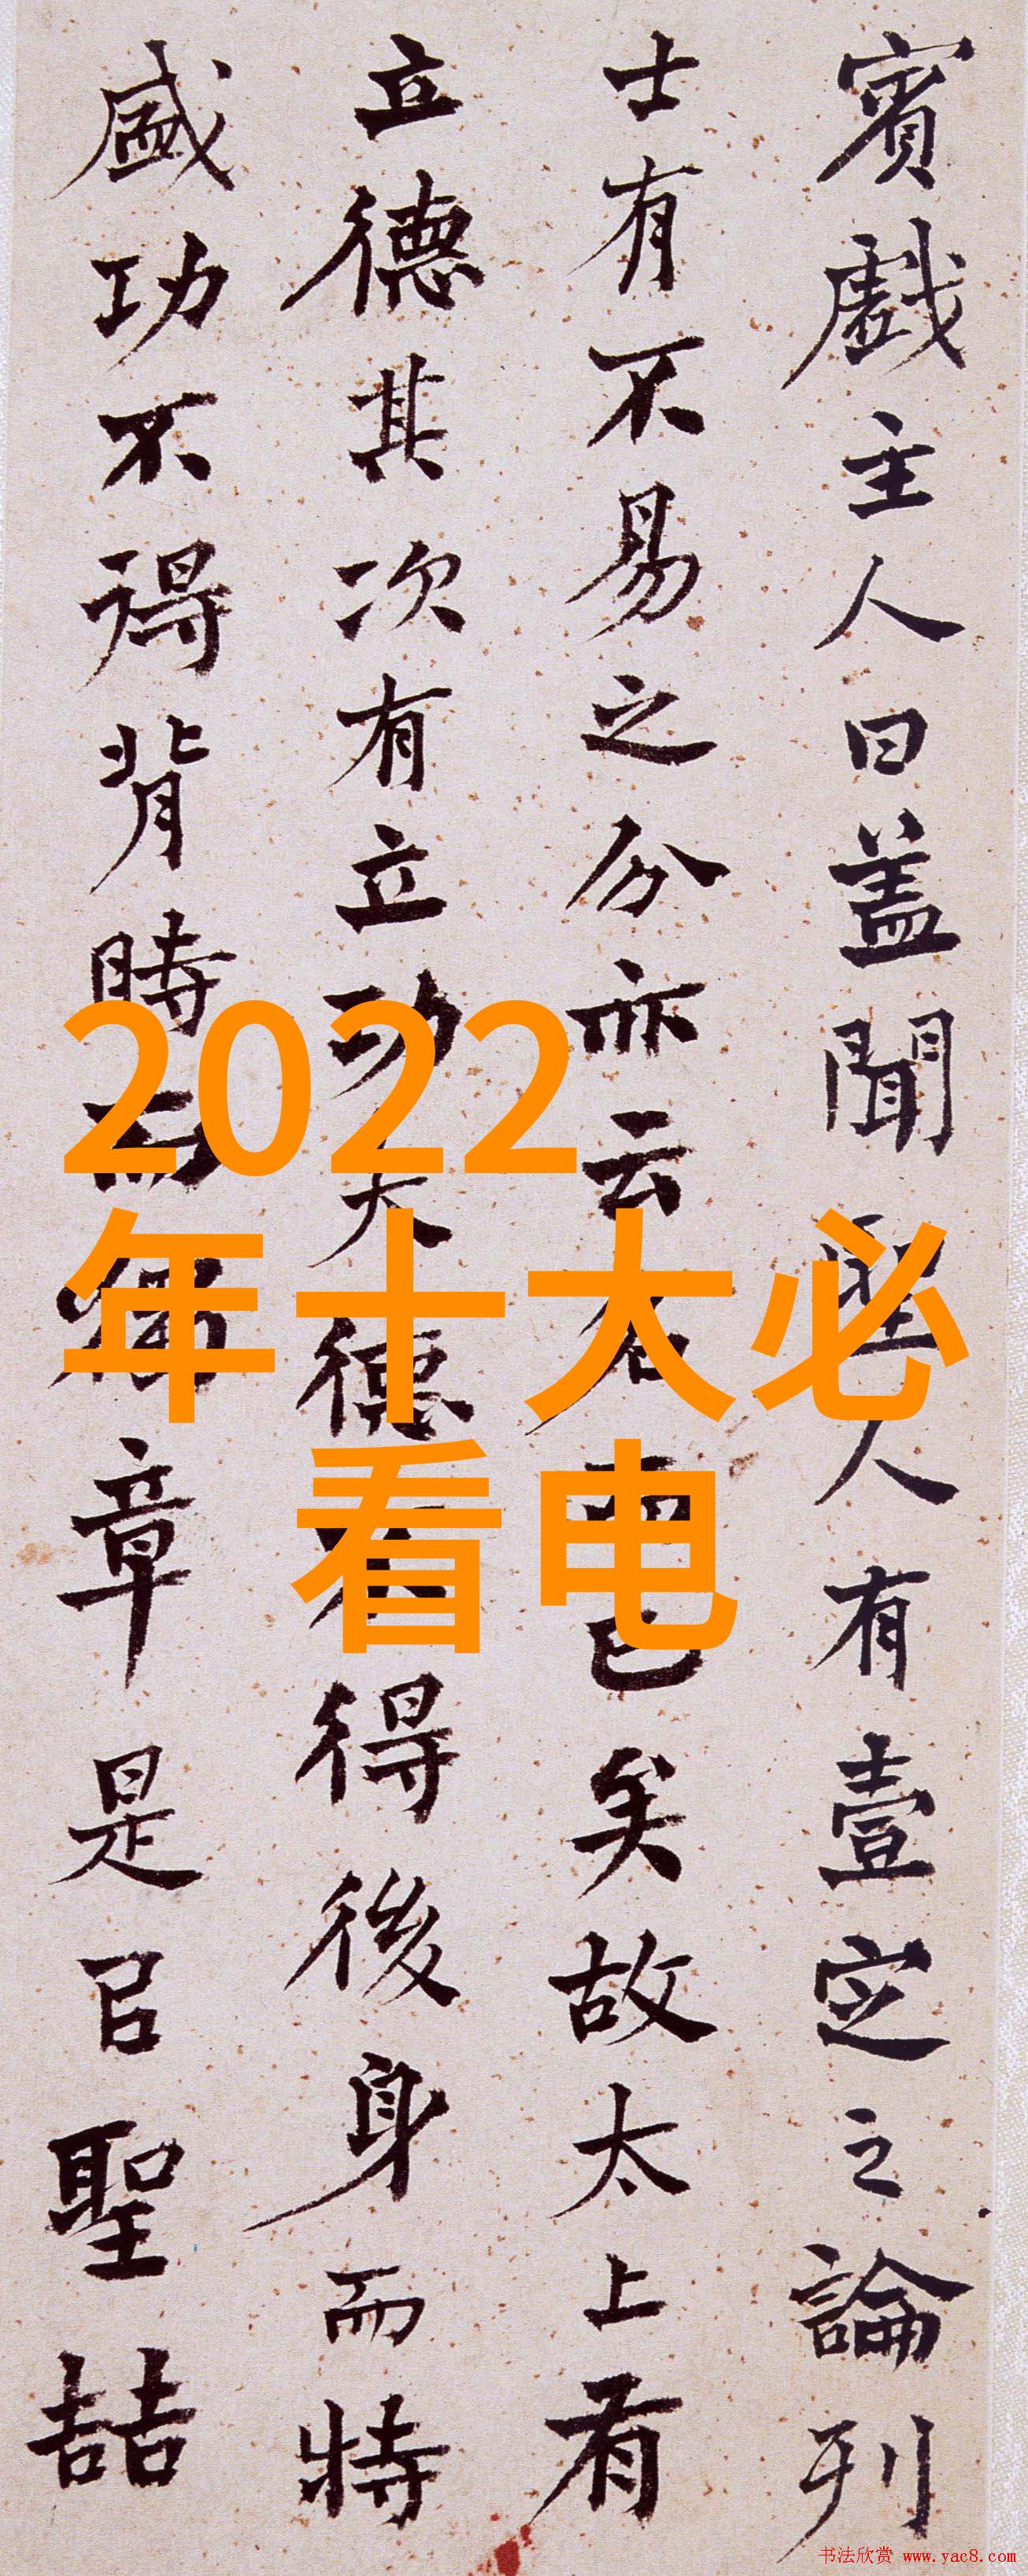 賓戲主人曰盖聞聖人有壹定之論列
士有不易之分亦云名而已矣故太上有
立德其次有立功夫德得後身而特
盛功不得背時而章是㠯聖喆
2022
年十大必
看电
书法欣赏 www.yac8.com